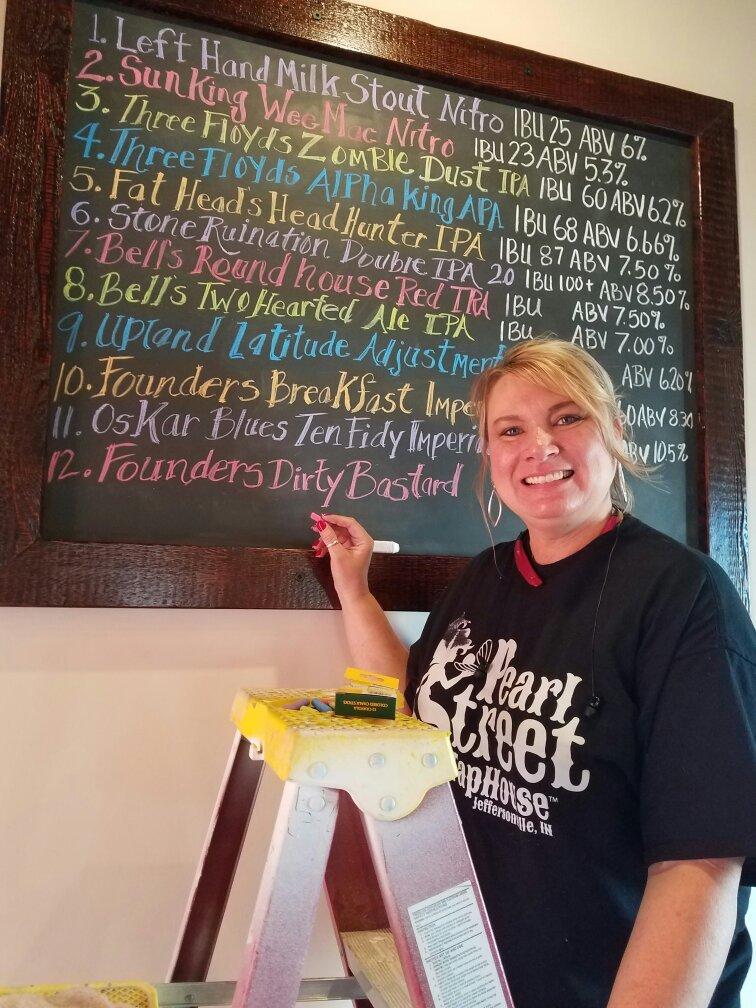 1. Left Hand Milk Stout Nitro IBU 25 ABV 6%
2. Sun King Wee Mac Nitro IBU 23 ABV 5.3%
3. Three Floyds Zombie Dust IPA IBU 60 ABV 6.2%
4. Three Floyds Alpha King APA IBU 68 ABV 6.66%
5. Fat Head's Head Hunter IPA IBU 87 ABV 7.50%
6. Stone Ruination Double IPA 2.0 IBU 100+ ABV 8.50%
7. Bell's Round house Red IRA IBU ABV 7.50%
8. Bell's Two Hearted Ale IPA IBU ABV 7.00%
9. Upland Latitude Adjustment ABV 6.20%
10. Founders Breakfast Impe 60 ABV 8.30
11. Oskar Blues Ten Fidy Imperi ABV 10.5%
12. Founders Dirty Bastard
Pearl
Street
TapHouse™
Jeffersonville, IN
12 CRAYOLA
COLORED CHALK STICKS